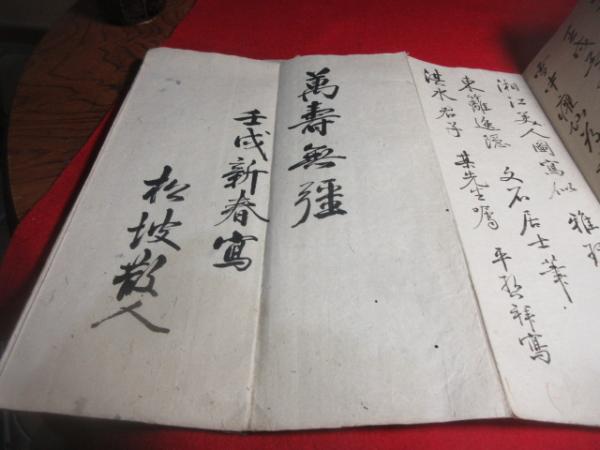 湘江美人圖寫似
雅
文石居士筆
東籬逸隠
平
祥寫
淇水君子
某先生嘱
萬壽無疆
壬戌新春寫
松坡散人